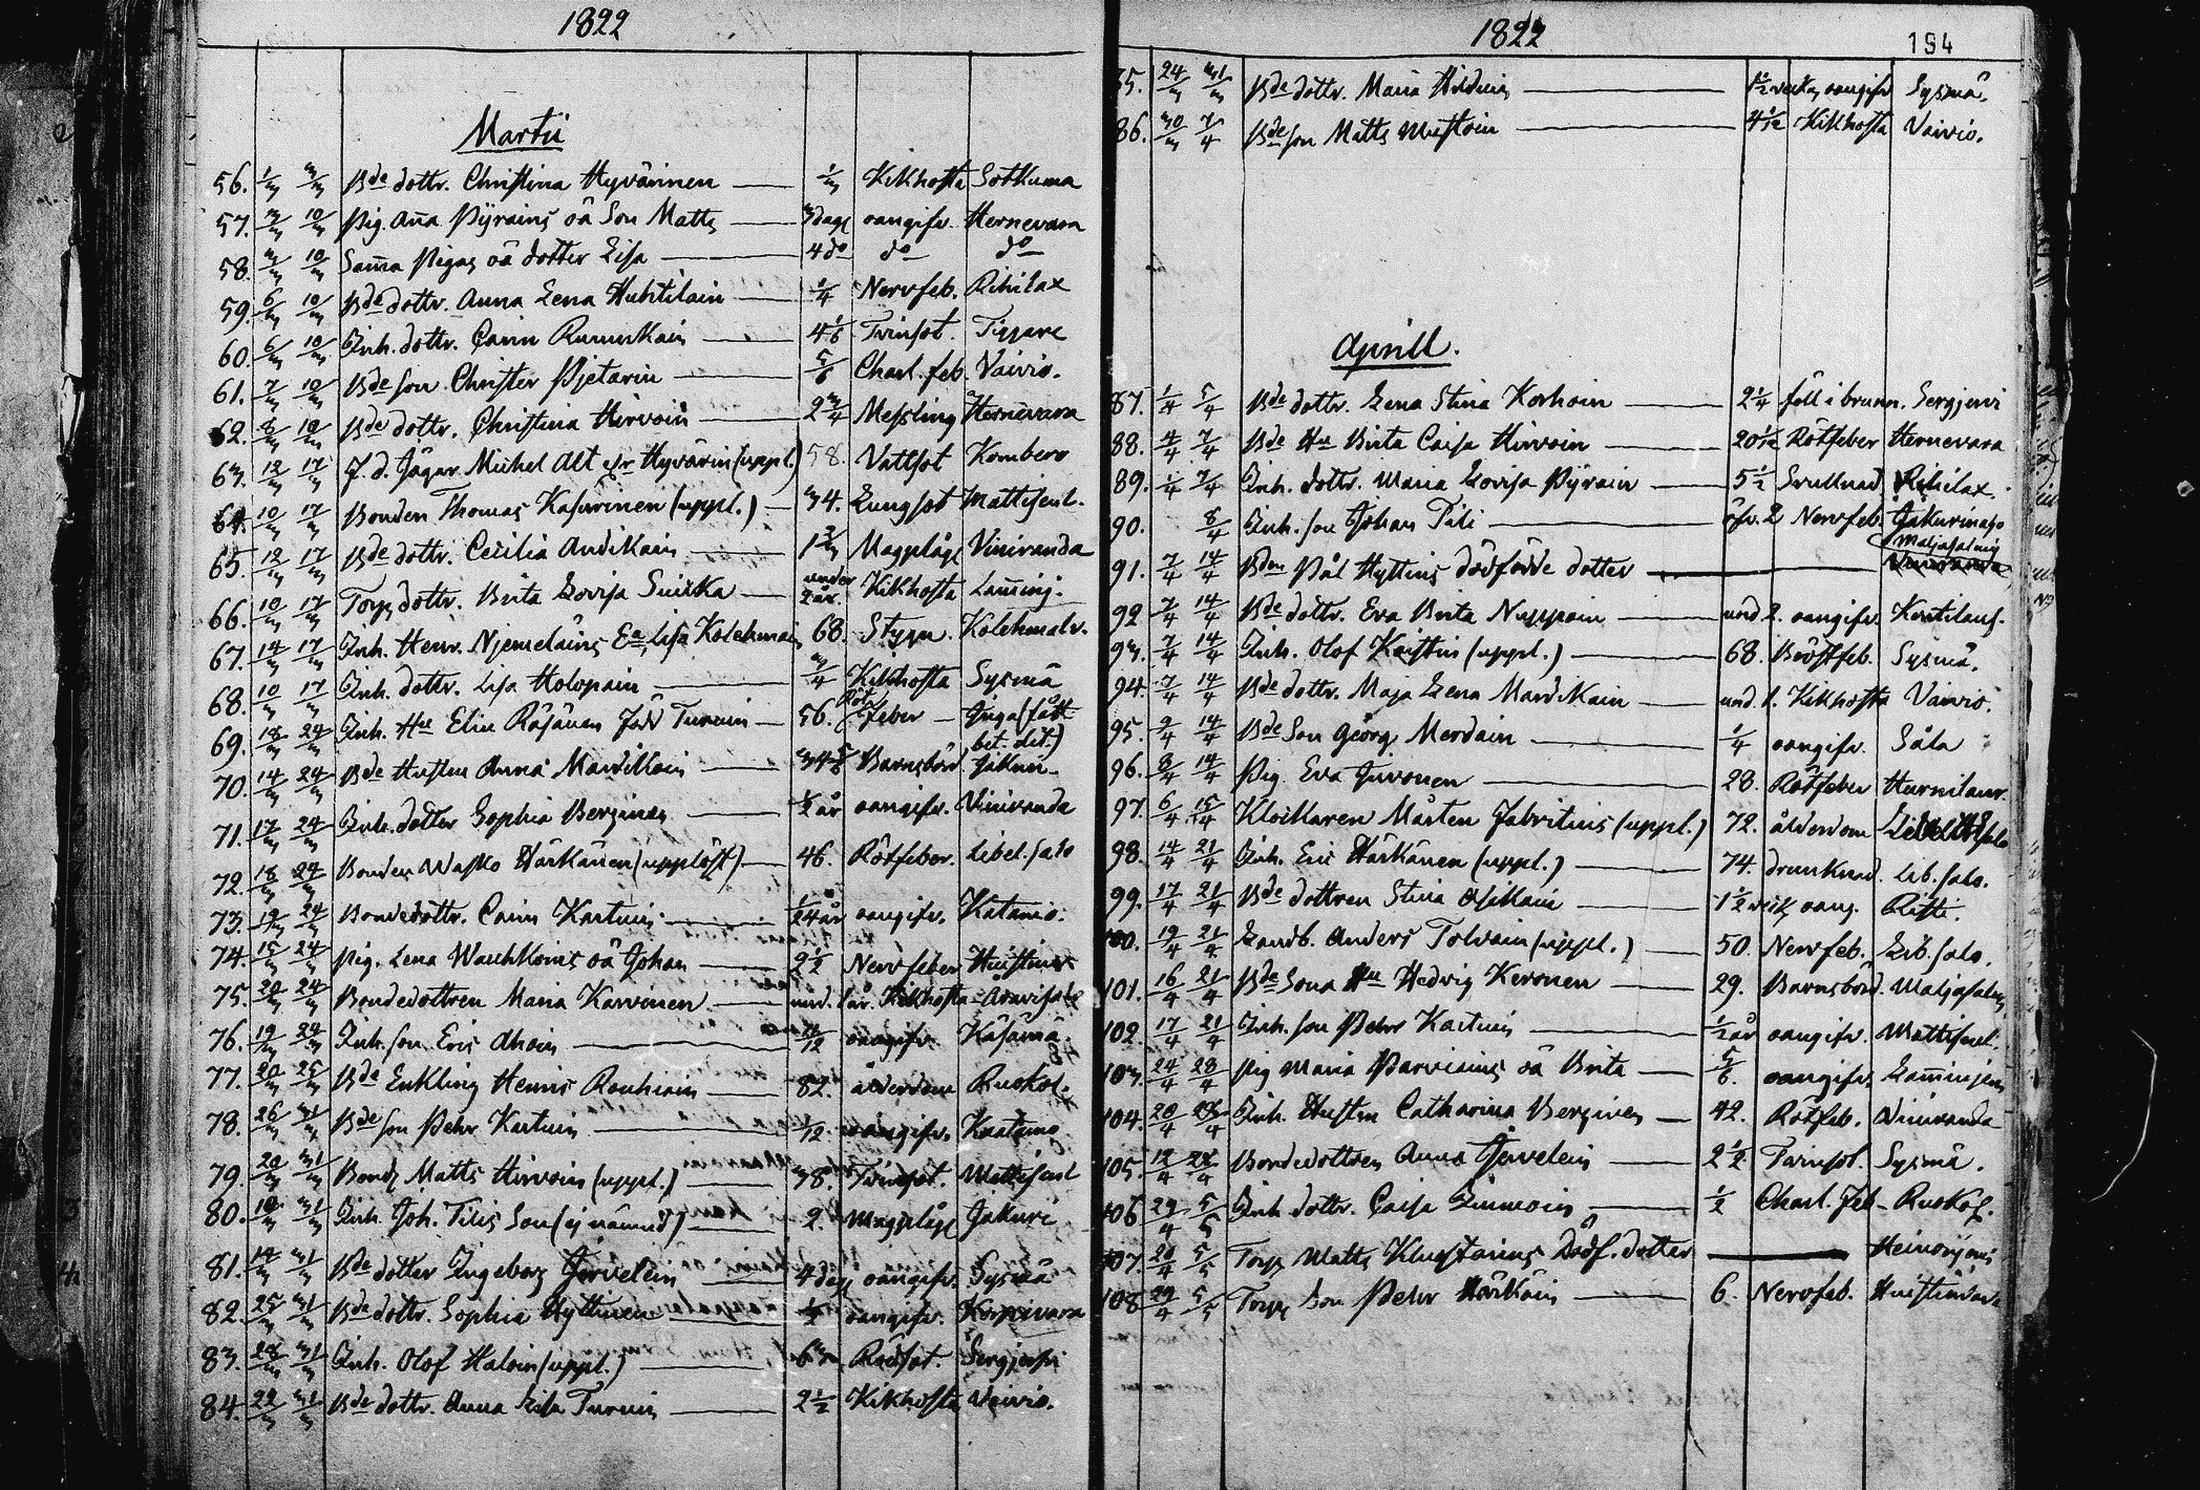 1822
Martii
56. 1/3 3/3 Bde dottr. Christina Hyvärinen — 1/3 Kikhosta Sotkuma
57. 3/3 10/3 Pig. Aña Pyrains oä Son Matts — 3 dag oangifv. Hernevara
58. 3/3 10/3 Sam̄a Pigas oä dotter Lisa — 4 do do do
59. 6/3 10/3 Bde dottr. Anna Lena Huhtilain — 1/4 Nervfeb. Rihilax
60. 6/3 10/3 Inh. dottr. Carin — 4 1/6 Tvinsot. Tiggare
61. 7/3 10/3 Bde son Christer Pjetarin — 5/6 Charl. feb. Vaivio.
62. 8/3 10/3 Bde dottr. Christina Hirvoin — 2 3/4 Messling Hernevara
63. 12/3 17/3 F. d. Jägar. Michel Alt Hyvärin (uppl.) 58. Vattsot Kombero
64. 10/3 17/3 Bonden Thomas Kasurinen (uppl.) — 34. Lungsot Mattisenl.
65. 12/3 17/3 Bde dottr. Cecilia Andikain — 1 2/3 Magplåg Viniranda
66. 10/3 17/3 Torp dottr. Brita Lovisa — under 2 år. Kikhosta Lam̄inj.
67. 14/3 17/3 Inh. Henr. Njemeläins Ea Lisa Kolehmain 68. Stygn. Kolehmalv.
68. 10/3 17/3 Inh. dottr. Lisa Holopain — 3/4 Kikhosta Sysmä
69. 18/3 24/3 Inh. Hu Elin Räsänen född Turuin — 56. Röt Feber — Inga (fått bet. dit.)
70. 14/3 24/3 Bde Hustru Anna — 34 Barnsbörd Jakun.
71. 17/3 24/3 Inh. dotter Sophia Berginen — 1/2 år oangifv. Viniranda
72. 18/3 24/3 Bonden Wasko Härkänen (upplöst) — 46. Rötfeber. Libel. salo
73. 19/3 24/3 Bondedottr. Carin Kartuin — 1/24 år oangifv. Katamo.
74. 15/3 24/3 Pig. Lena Wauhkoins oä Johan — 2 1/2 Nervfeber
75. 20/3 24/3 Bondedottren Maria Karvinen — und. 1 år. Kikhosta
76. 19/3 24/3 Inh. son Eric Ahoin — 11/12 oangifv. Käsämä
77. 20/3 25/3 Bde Enkling Henric Rouhiain — 82. ålderdom Ruskol.
78. 26/3 31/3 Bde son Pehr Kartuin — 1/12. oangifv. Kaatamo
79. 20/3 31/3 Bond Matts Hirvoin (uppl.) — 38. Tvinsot. Mattisenl
80. 19/3 31/3 Inh. Joh. Tilis Son (ej nämnd) — 2. Magplåg Jakuri
81. 14/3 31/3 Bde dotter Ingeborg Jervelein — 4 dag oangifv. Sysmä
82. 25/3 31/3 Bde dottr. Sophia Hyttinen — 1/2 oangifv. Korpivara
83. 28/3 31/3 Inh. Olof Haloin (uppl.) — 63 Rödsot. Sergjervi
84. 22/3 31/3 Bde dottr. Anna Lisa Turuin — 2 1/2 Kikhosta Vaivio.
1822 194
85. 24/3 31/3 Bde dottr. Maria — 1 1/2 veck oangifv Sysmä.
86. 30/3 7/4 Bde son Matts Mustoin — 4 1/12 Kikhosta Vaivio.
Aprill.
87. 1/4 5/4 Bde dottr. Lena Stina Korhoin — 2 1/4 föll i brunn. Sergjervi
88. 4/4 7/4 Bde Hu Brita Caisa Hirvoin — 20 1/12 Rötfeber Hernevara
89. 1/4 7/4 Inh. dottr. Maria Lovisa Pyrain — 5 1/2 Svullnad Rihilax.
90. 8/4 Inh. son Johan Tili — öfv. 2 Nervfeb. Jakurinago
91. 7/4 14/4 Bdn Pål Hyttins dödfödde dotter — Maljasalmj
92 7/4 14/4 Bde dottr. Eva Brita Nuppoin — und 2. oangifv. Kontilaus.
93. 7/4 14/4 Inh. Olof Kaittin (uppl.) — 68. Bröstfeb. Sysmä.
94. 7/4 14/4 Bde dottr. Maja Lena Mardikain — und. 1. Kikhosta Vaivio.
95. 9/4 14/4 Bde Son Georg Merdain — 1/4 oangifv. Såla
96. 8/4 14/4 Pig. Eva Juvonen — 28. Rötfeber
97. 6/4 15/4 Klockaren Mårten Fabritius (uppl.) 72. ålderdom
98. 14/4 21/4 Inh. Eric Härkänen (uppl.) — 74. drunknad Lib. salo.
99. 17/4 21/4 Bde dottren Stina Asikain — 1 1/2 veck oang. Risti.
100. 19/4 21/4 Landb. Anders Tolvain (uppl.) — 50. Nervfeb. Lib. salo.
101. 16/4 21/4 Bde Sona Hu Hedvig Keronen — 29. Barnsbörd. Maljasalmj
102. 17/4 21/4 Inh. son Pehr Kartuin — 1/2 år oangifv. Mattisenl.
103. 24/4 28/4 Pig Maria Parviains oä Brita — 5/6. oangifv. Lam̄injem
104. 20/4 28/4 Inh. Hustru Catharina Berginen — 42. Rötfeb. Viniranda
105. 12/4 28/4 Bondedottren Anna Jervelein — 2 1/2 Tvinsot. Sysmä.
106 29/4 5/5 Inh dottr. Caisa — 1/2 Charl. Feb — Ruskol.
107. 20/4 5/5 Torp Matts dödf. dotter — Heinonjemi
108 29/4 5/5 Torp Son Pehr Härköin — 6. Nervfeb.